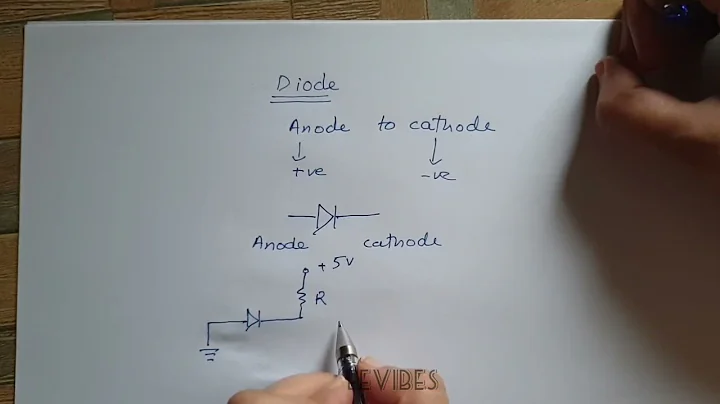 Diode
Anode to cathode
+ve -ve
Anode cathode
+ 5v
R
EEVIBES